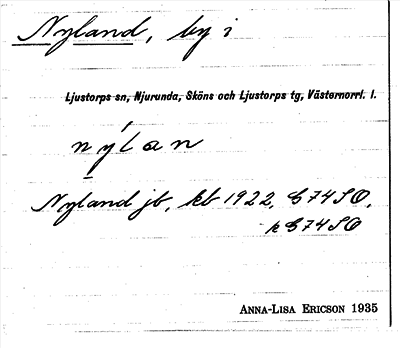 Nyland, by i
Ljustorps sn, Njurunda, Sköns och Ljustorps tg, Västernorrl. l.
nýlan
Nyland jb, kb 1922, G74SO,
k G74SO
ANNA-LISA ERICSON 1935